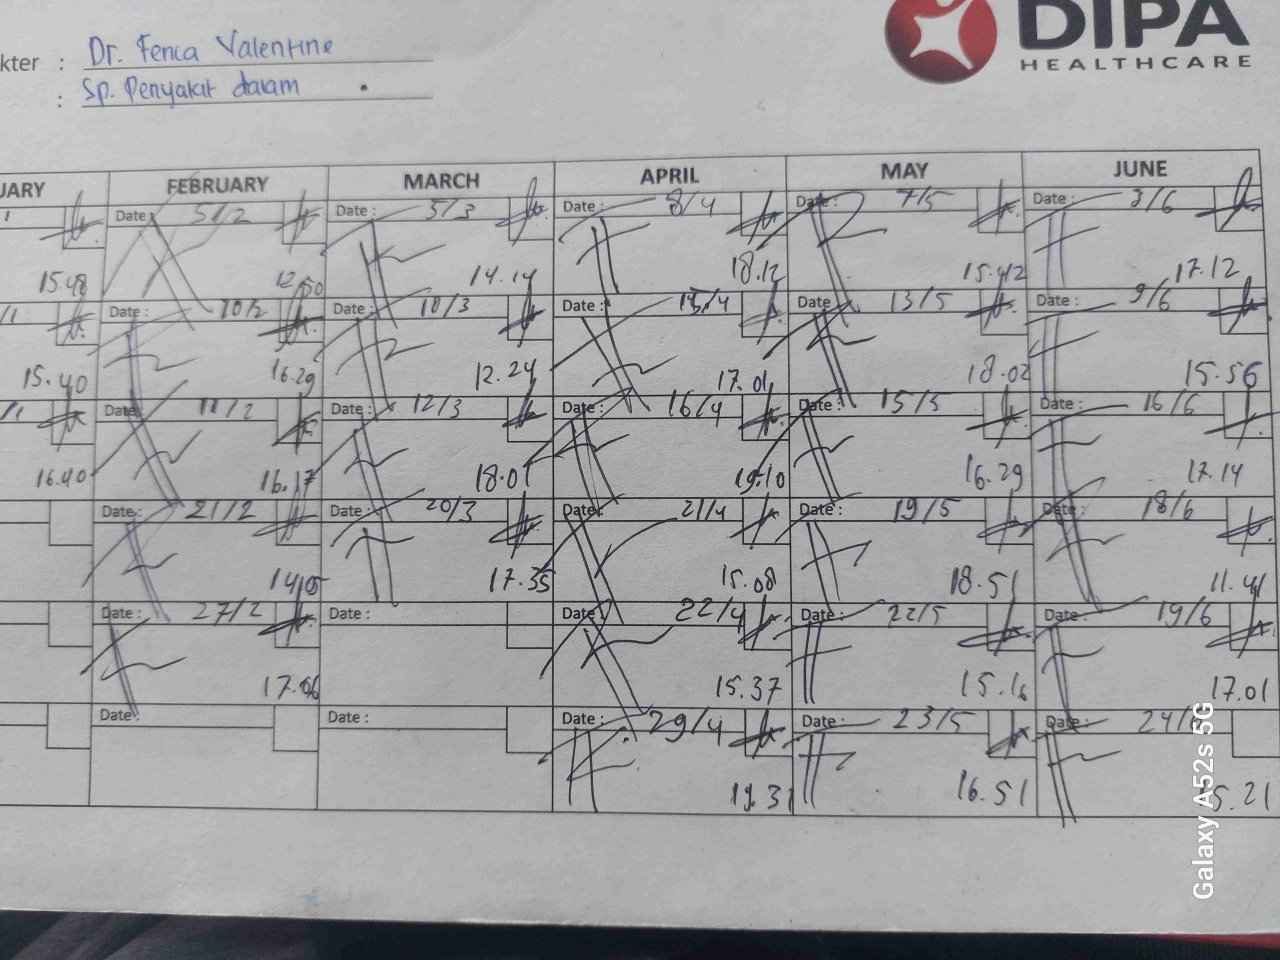 DIPA
HEALTHCARE
kter : Dr. Fenca Valentine
: Sp. Penyakit dalam
UARY FEBRUARY MARCH APRIL MAY JUNE
Date : 5/2 Date : 5/3 Date : 8/4 Date : 7/5 Date : 3/6
15.48 12.50 14.14 18.12 15.42 17.12
/1 Date : 10/2 Date : 10/3 Date : 15/4 Date 13/5 Date : 9/6
15.40 16.29 12.24 17.01 18.02 15.56
/1 Date 11/2 Date : 12/3 Date : 16/4 Date : 15/5 Date : 16/6
16.40 16.17 18.01 19.10 16.29 17.14
Date : 21/2 Date : 20/3 Date : 21/4 Date : 19/5 Date : 18/6
14.05 17.35 15.08 18.51 11.41
Date : 27/2 Date : Date : 22/4 Date : 22/5 Date : 19/6
17.06 15.37 15.16 17.01
Date : Date : Date : 29/4 Date : 23/5 Date : 24/6
19.31 16.51 15.21
Galaxy A52s 5G